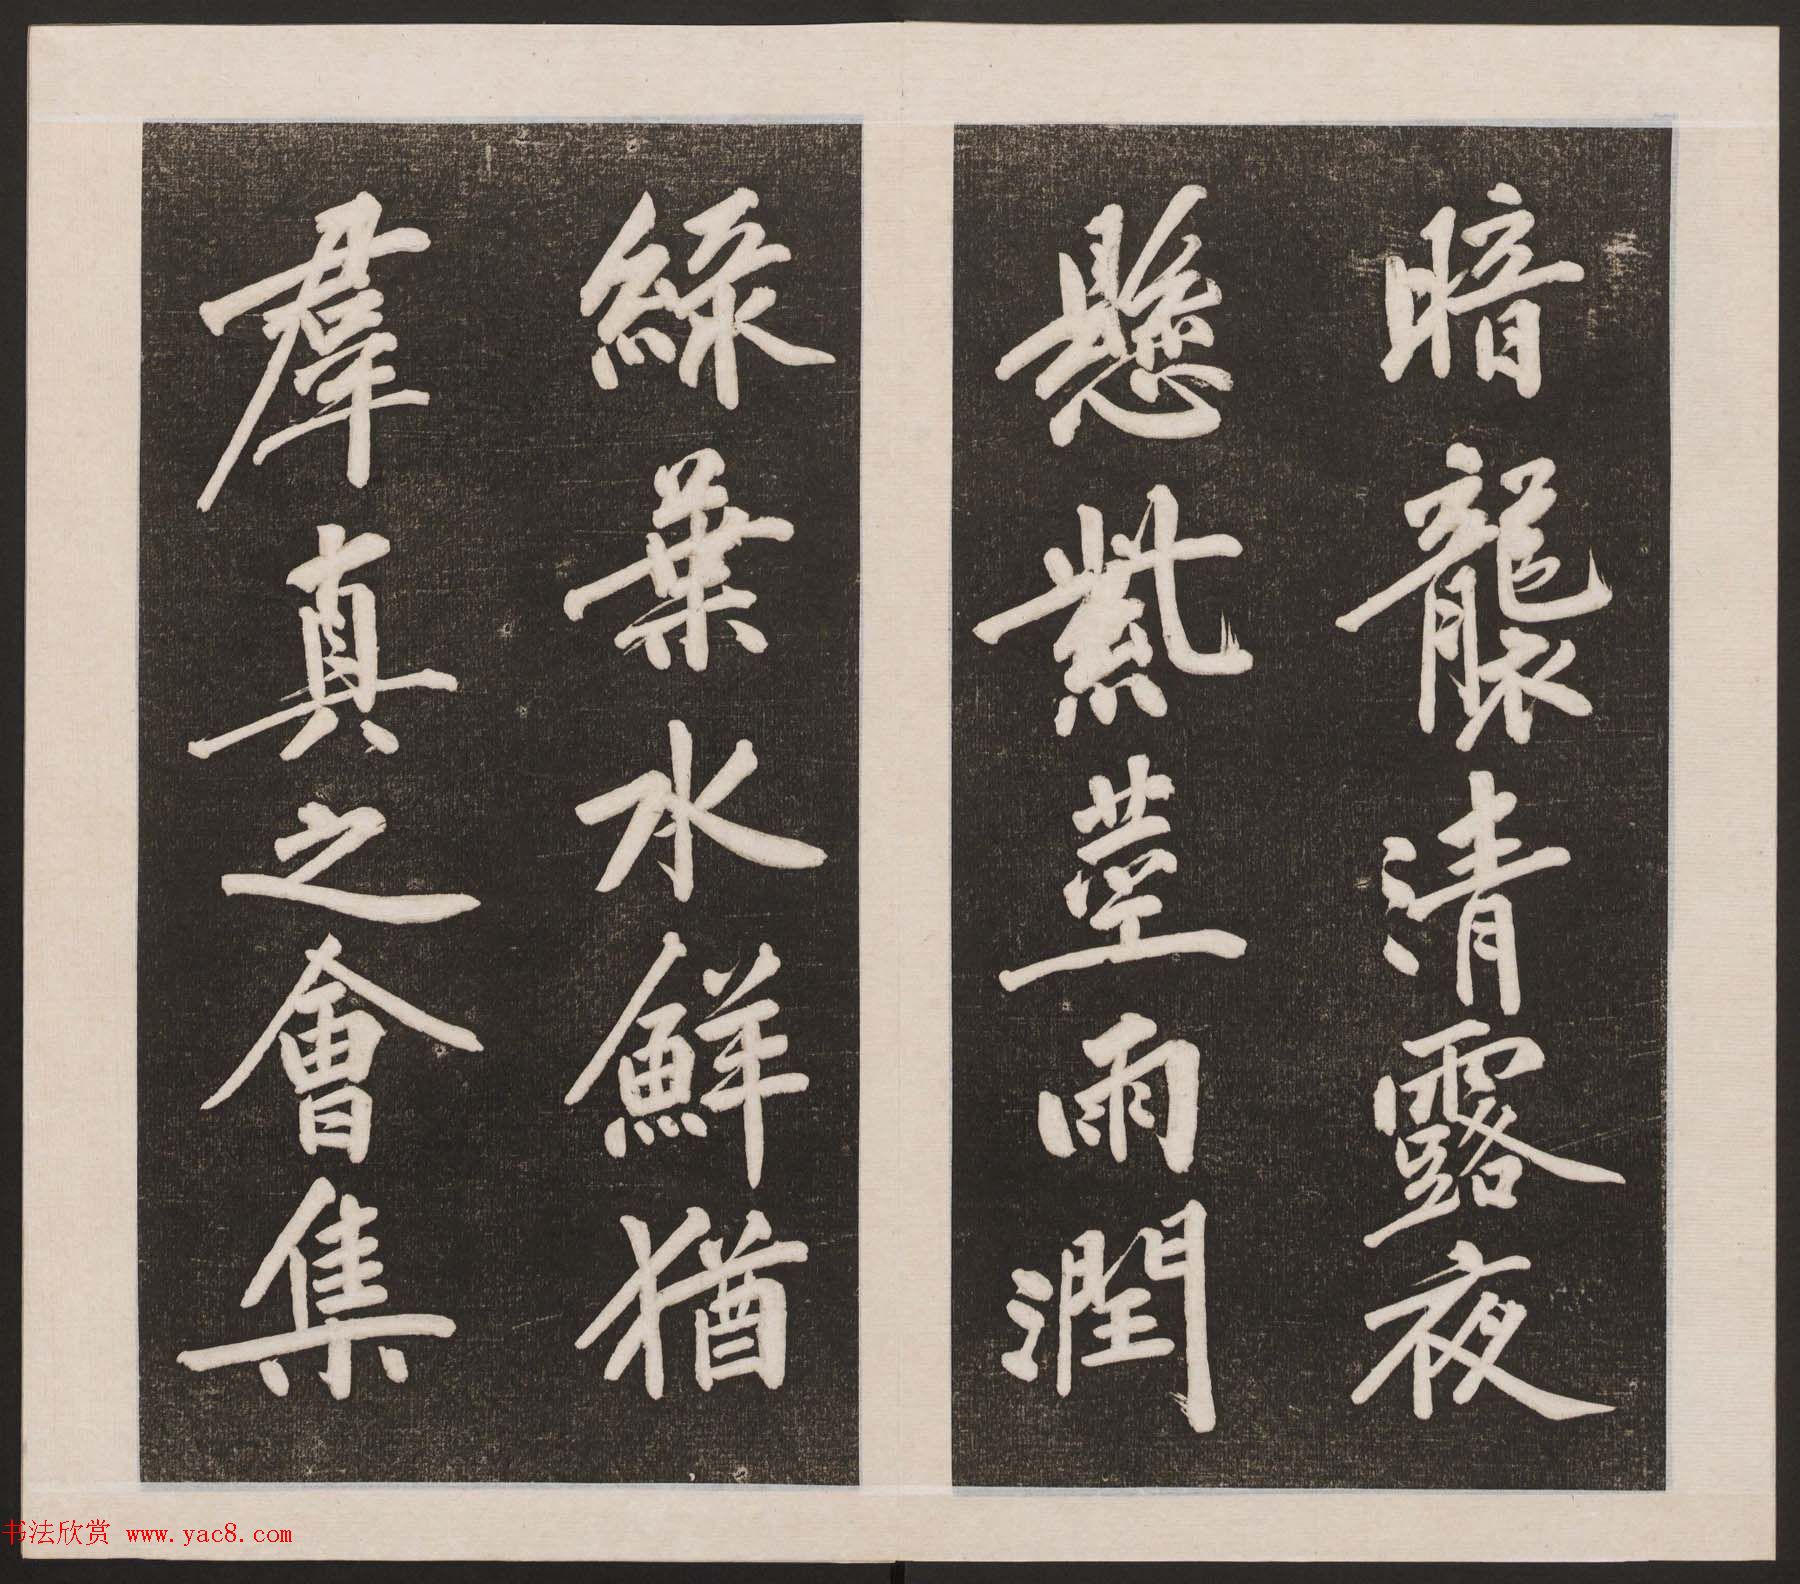 暗襲清露夜
懸紫莖雨潤
綠葉水鮮猶
羣真之會集
书法欣赏 www.yac8.com